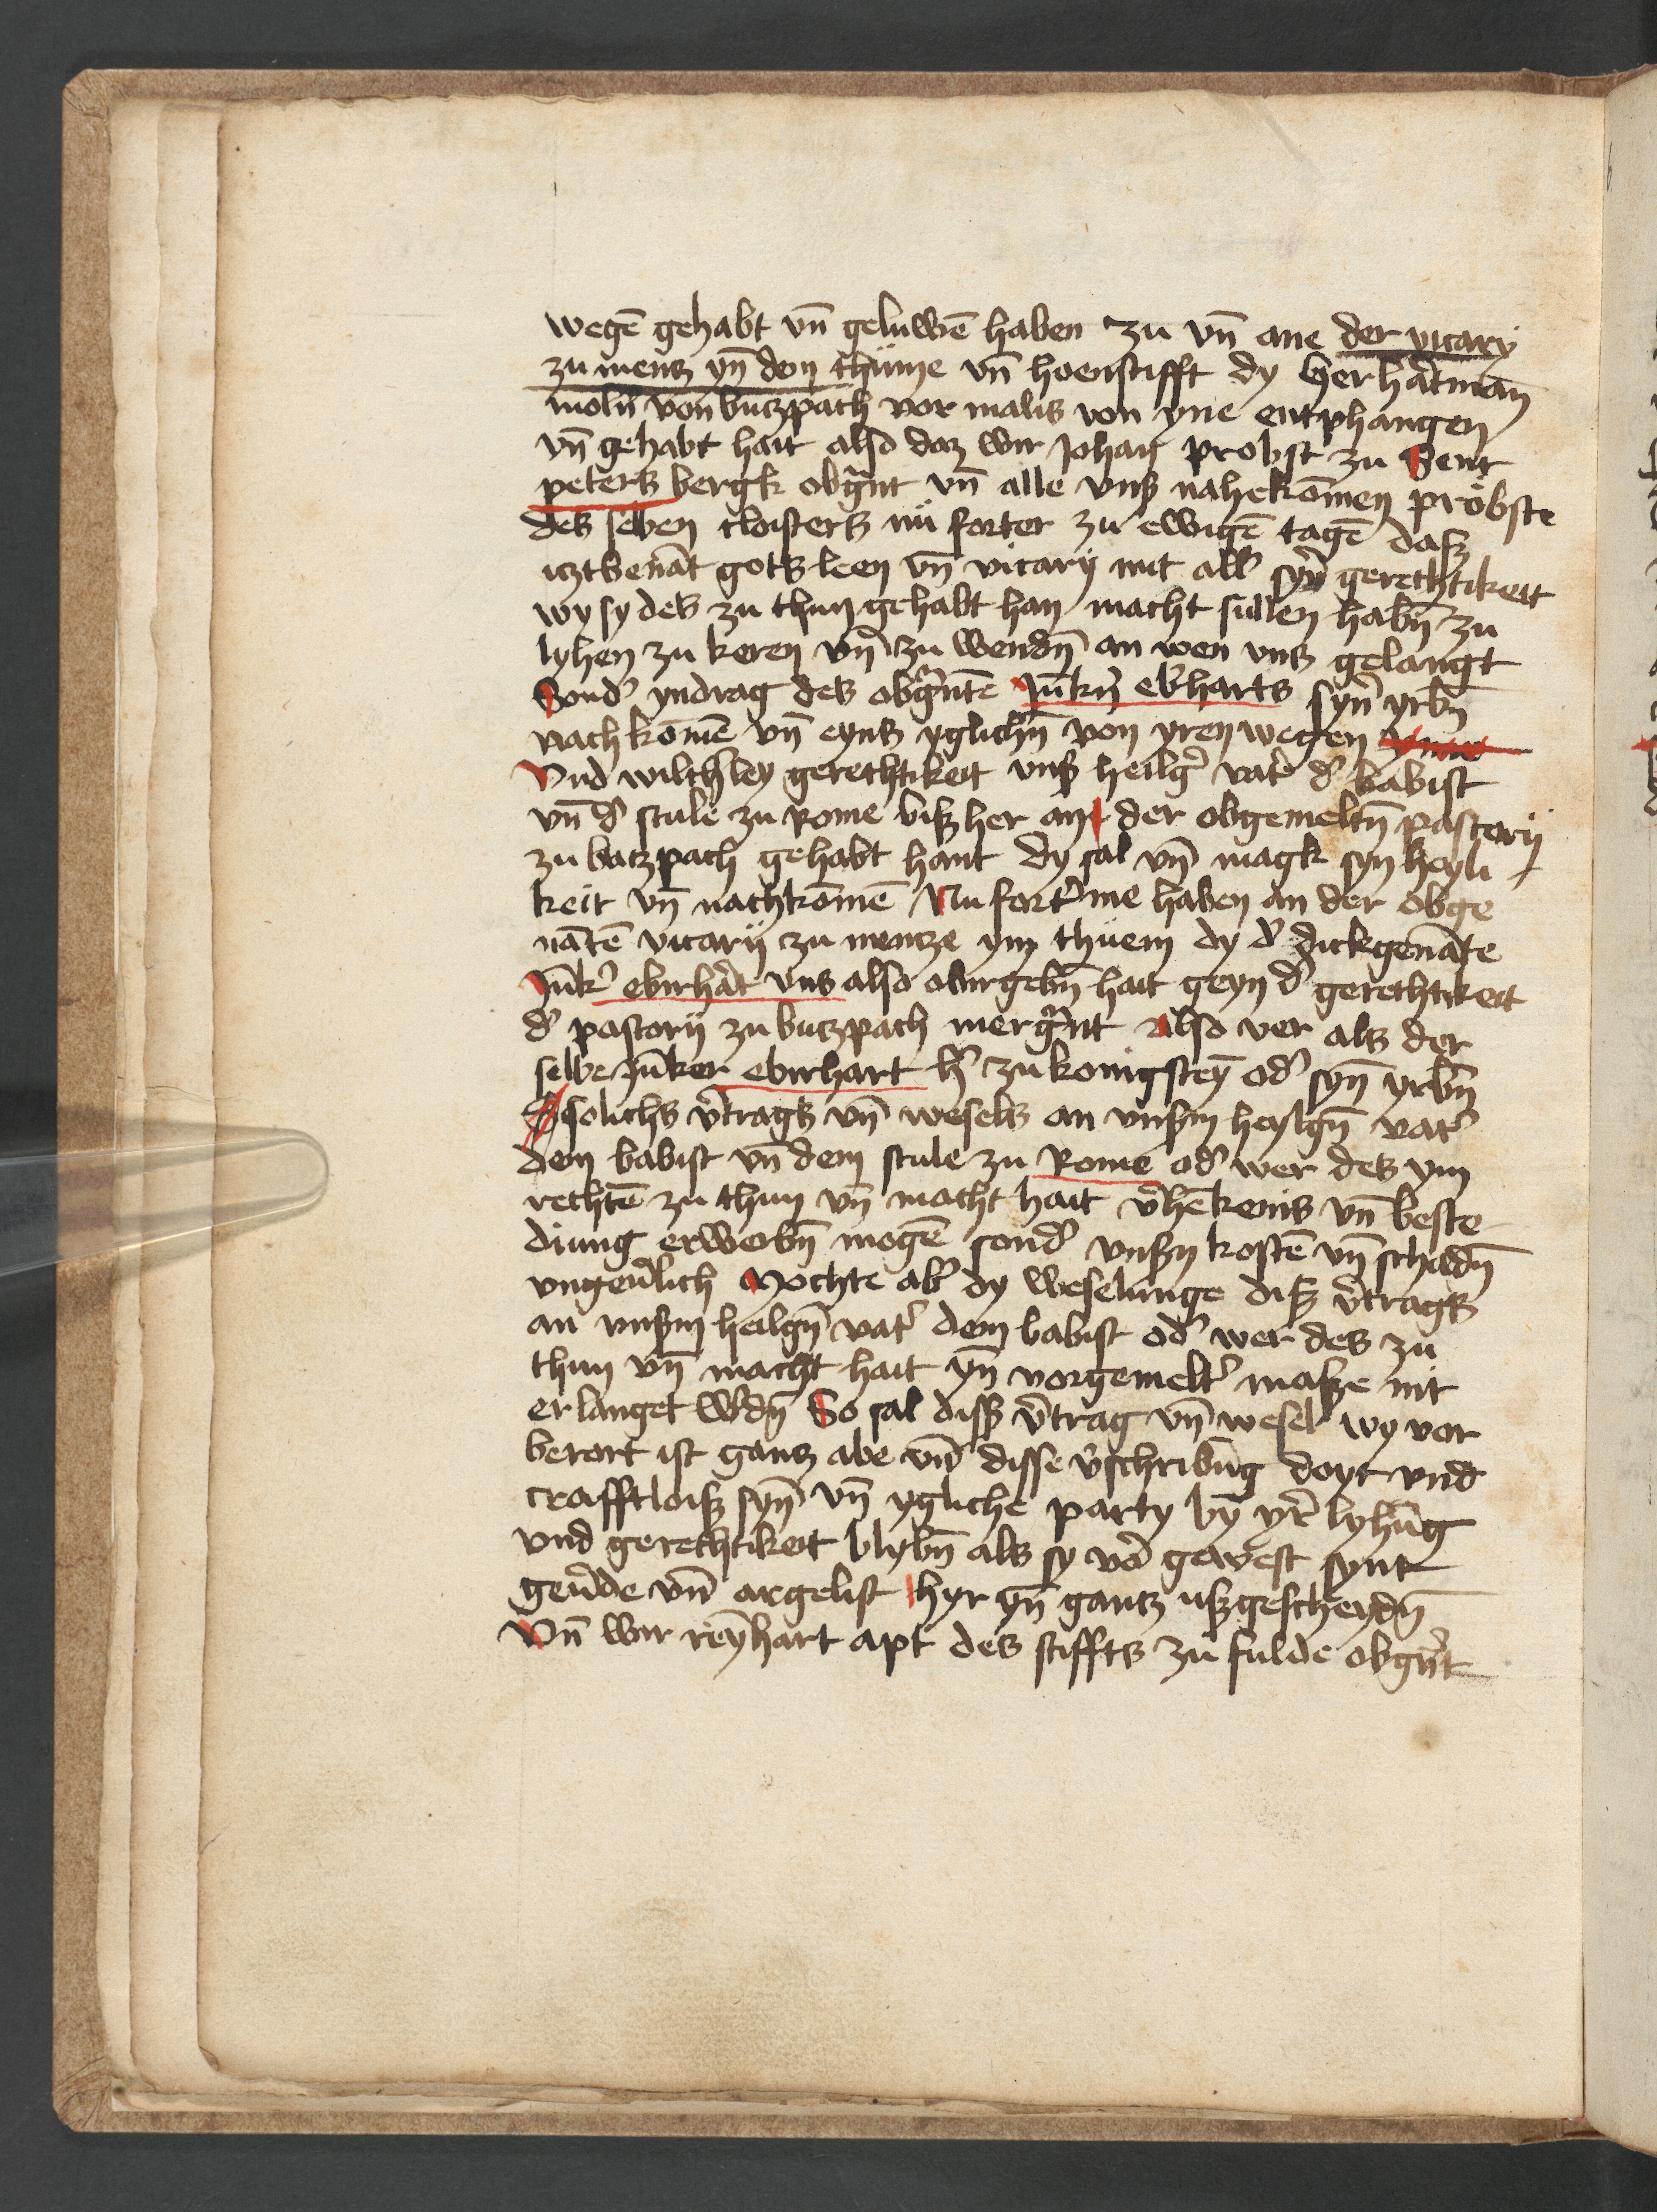 wegē gehabt vn̄ geluwē haben zu vn̄ ane der vicary
zu menz yn̄ dem thume vn̄ hoenstifft dy Her hartman̄
moln̄ von butzpach vor malis von yne entphangen
vn̄ gehabt hait also daz wir Johan probst zu Sent
peters bergk obgnt vn̄ alle vnß nahekōmen pröbste
des selben cloisters nü forter zu ewigē tagē daß
itztbenāt gotß leen vn̄ vicarij mit all' syn' gerechtikeit
wy sy des zu thun gehabt han macht sullen habn̄ zu
lyhen zu keren vn̄ zu wendn̄ an wen vns gelangt
Sond' yndrag des obgntē Jūkn̄ ebharts syn' yrbn̄
nach komē vn̄ eyns yglichn̄ von yren wegen
Vnd wilch'ley gerechtikeit vnß heilg' vat' d' babist
vn̄ d' stule zu Rome biß her an der obgemeltn̄ pastorij
zu butzpach gehabt hant dy sal vn̄ magk syn heyli
keit vn̄ nachkomē Nu fort' me haben an der obge
nātē vicarij zu mentze ym thuem dy d' dickgenāte
Jūk' ebirhart vns also obirgebn̄ hait geyn d' gerechtikeit
d' pastorij zu butzpach mergnt also ver als der
selbe Jūker ebirhart h' zu konigsteȳ od' syn̄ yrbn̄
solichs v'tragß vn̄ wesels an vnßm heylgn̄ vat'
dem babist vn̄ dem stule zu Rome od' wer des ym
rechtē zu thun vn̄ macht hait v'hēkenis vn̄ beste
diung erwerbn̄ mogē sond' vnßn kostē vn̄ schadn̄
vngeu'lich Mochte ab' dy weselunge diß v'tragß
an vnßm heilgn̄ vat' dem babist od' wer des zu
thun vn̄ macht hait yn̄ vorgemelt' maße nit
erlanget w'dn̄ So sal diß v'trag vn̄ wesel wy vor
berort ist ganz abe vn̄ disse v'schribūg doyt vnd
crafftloiß syn̄ vn̄ ygliche party bȳ yr' lyhūg
vnd gerechtikeit blybn̄ als sy vor gewest synt
geu'de vn̄ argelist hyr yn̄ gantz ußgescheydn̄
Vn̄ wir reȳhart apt des stiffts zu fulde obgn't